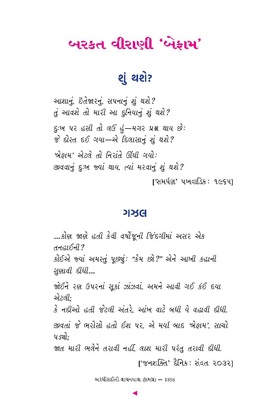 બરકત વીરાણી ‘બેફામ’
શું થશે?
આશાનું, ઇંતેજારનું, સપનાનું શું થશે?
તું આવશે તો મારી આ દુનિયાનું શું થશે?
દુઃખ પર હસી તો લઉં હું—મગર પ્રશ્ન થાય છેઃ
જે દોસ્ત દઈ ગયા—એ દિલાસાનું શું થશે?
‘બેફામ’ એટલે તો નિરાંતે ઊંઘી ગયોઃ
જીવવાનું દુઃખ જ્યાં થાય, ત્યાં મરવાનું શું થશે?
[‘સમર્પણ’ પખવાડિકઃ ૧૯૬૫]
ગઝલ
...કોણ જાણે હતી કેવી વર્ષોજૂની જિંદગીમાં અસર એક
તનહાઈની?
કોઈએ જ્યાં અમસ્તું પૂછ્યુંઃ “કેમ છો?” એને આખી કહાની
સુણાવી દીધી...
જોઈને રણ ઉપરનાં સૂકાં ઝાંઝવાં, અમને આવી ગઈ કંઈ દયા
એટલી;
કે નદીઓ હતી જેટલી અંતરે, આંખ વાટે બધી યે વહાવી દીધી.
જીવતાં જે ભરોસો હતો ઈશ પર, એ મર્યા બાદ ‘બેફામ’, સાચો
પડ્યો;
જાત મારી ભલેને તરાવી નહીં, લાશ મારી પરંતુ તરાવી દીધી.
[‘જનશક્તિ’ દૈનિકઃ સંવત ૨૦૩૨]